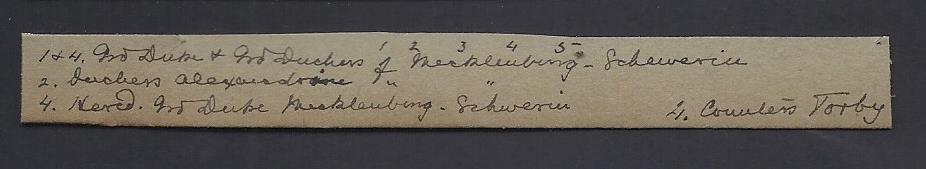 1 2 3 4 5
1&4. Grd Duke & Grd Duchess of Mecklenburg-Schewerin
2. Duchess Alexandrine " "
4. Hered. Grd Duke Mecklenburg-Schwerin 4. Countess Torby